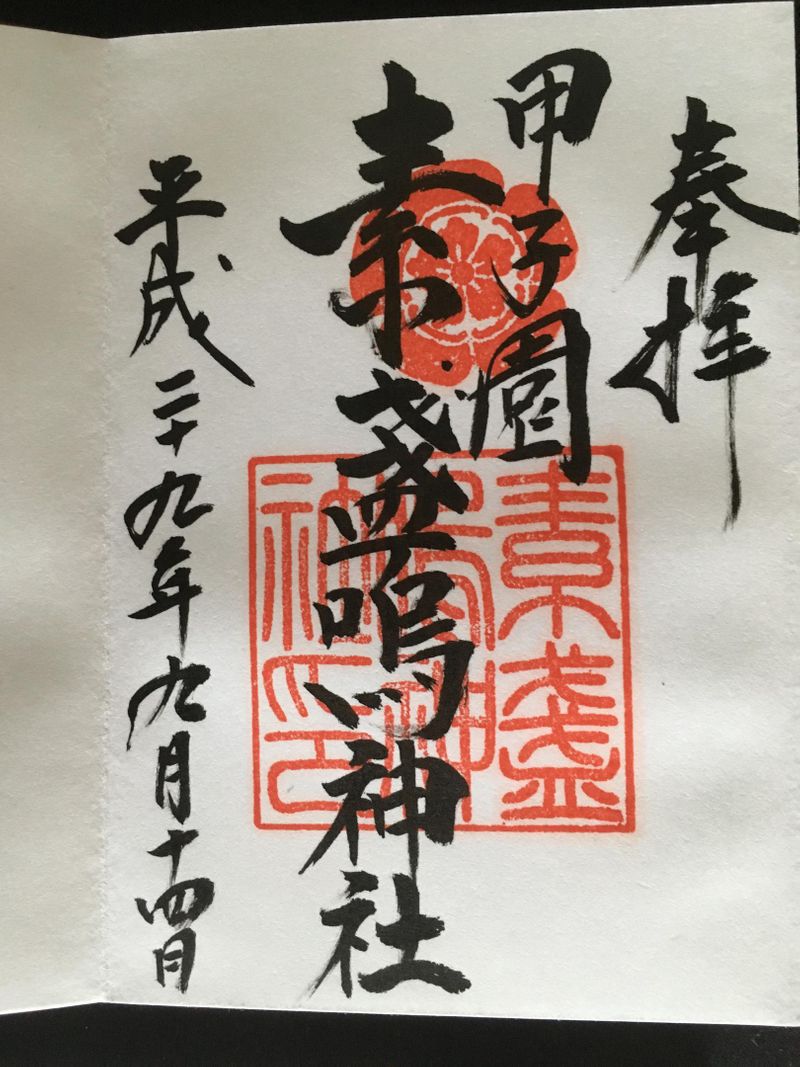 奉拝
甲子園
素盞嗚神社
平成二十九年九月十四日
素盞
嗚神
印